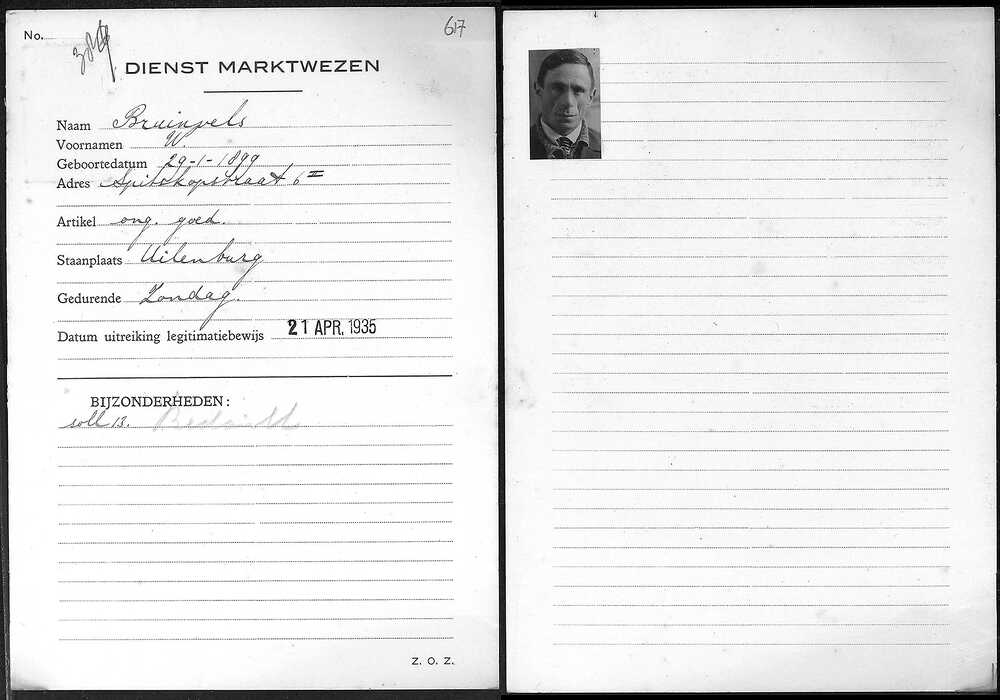 No. 617
DIENST MARKTWEZEN
Naam Bruinvels
Voornamen W.
Geboortedatum 29-1-1899
Adres Spitskopstraat 6 II
Artikel ong. goed.
Staanplaats Uilenburg
Gedurende Zondag.
Datum uitreiking legitimatiebewijs 21 APR. 1935
BIJZONDERHEDEN:
soll 13.
Z. O. Z.